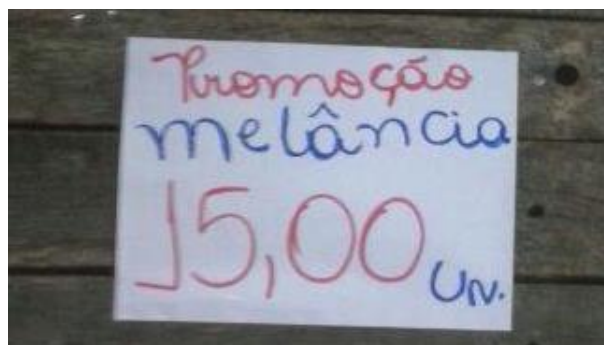 Promoção
melância
15,00 un.